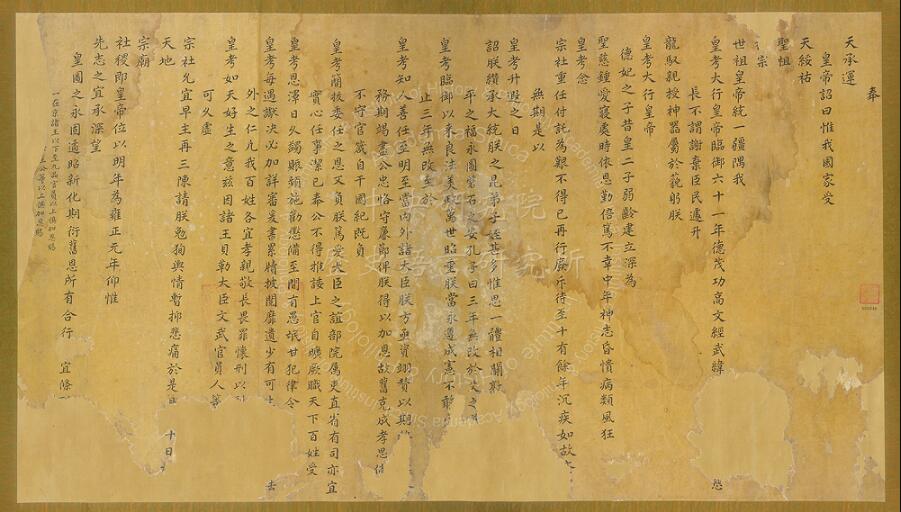 奉
天承運
皇帝詔曰惟我國家受
天綏祐
聖祖
宗
世祖皇帝統一疆隅我
皇考大行皇帝臨御六十一年德茂功高文經武緯
長不謂謝棄臣民遽升
龍馭親授神器屬於藐躬朕
皇考大行皇帝
德妃之子昔皇二子弱齡建立深為
聖慈鍾愛寢處時依恩勤倍篤不幸中年神志昏憒病類風狂
皇考念
宗社重任付託為艱不得已再行廢斥待至十有餘年沉疾如故
無期是以
皇考升遐之日
詔朕纘承大統朕之昆弟子姪甚多惟思一體相關敦
平之福永圖磐石之安孔子曰三年無改於父之
皇考臨御以來良法美政萬世昭垂朕當永遵成憲不敢
止三年無改至於
皇考知人善任至明至當內外諸大臣朕方亟資翊贊以期
務期竭盡公忠恪守廉節俾朕得以加恩故舊克成孝思
不守官箴自干國紀既負
皇考簡拔委任之恩又負朕篤愛大臣之誼部院屬吏直省有司亦宜
實心任事潔己奉公不得推諉上官自曠厥職天下百姓受
皇考恩澤日久蠲賑頻施勸懲備至間有愚氓甘犯律令
皇考每遇讞決必加詳審爰書累情披閱靡遺少有可
去
外之仁凡我百姓各宜孝親敬長畏罪懷刑以
皇考如天好生之意茲因諸王貝勒大臣文武官員人等
可久虛
宗社允宜早主再三陳請朕勉狥輿情暫抑悲痛於是
十日
天地
宗廟
社稷即皇帝位以明年為雍正元年仰惟
先志之宜承深望
皇圖之永固遹昭新化期衍舊恩所有合行
宜條
一在京諸王以下至九品官員以上俱加恩賜